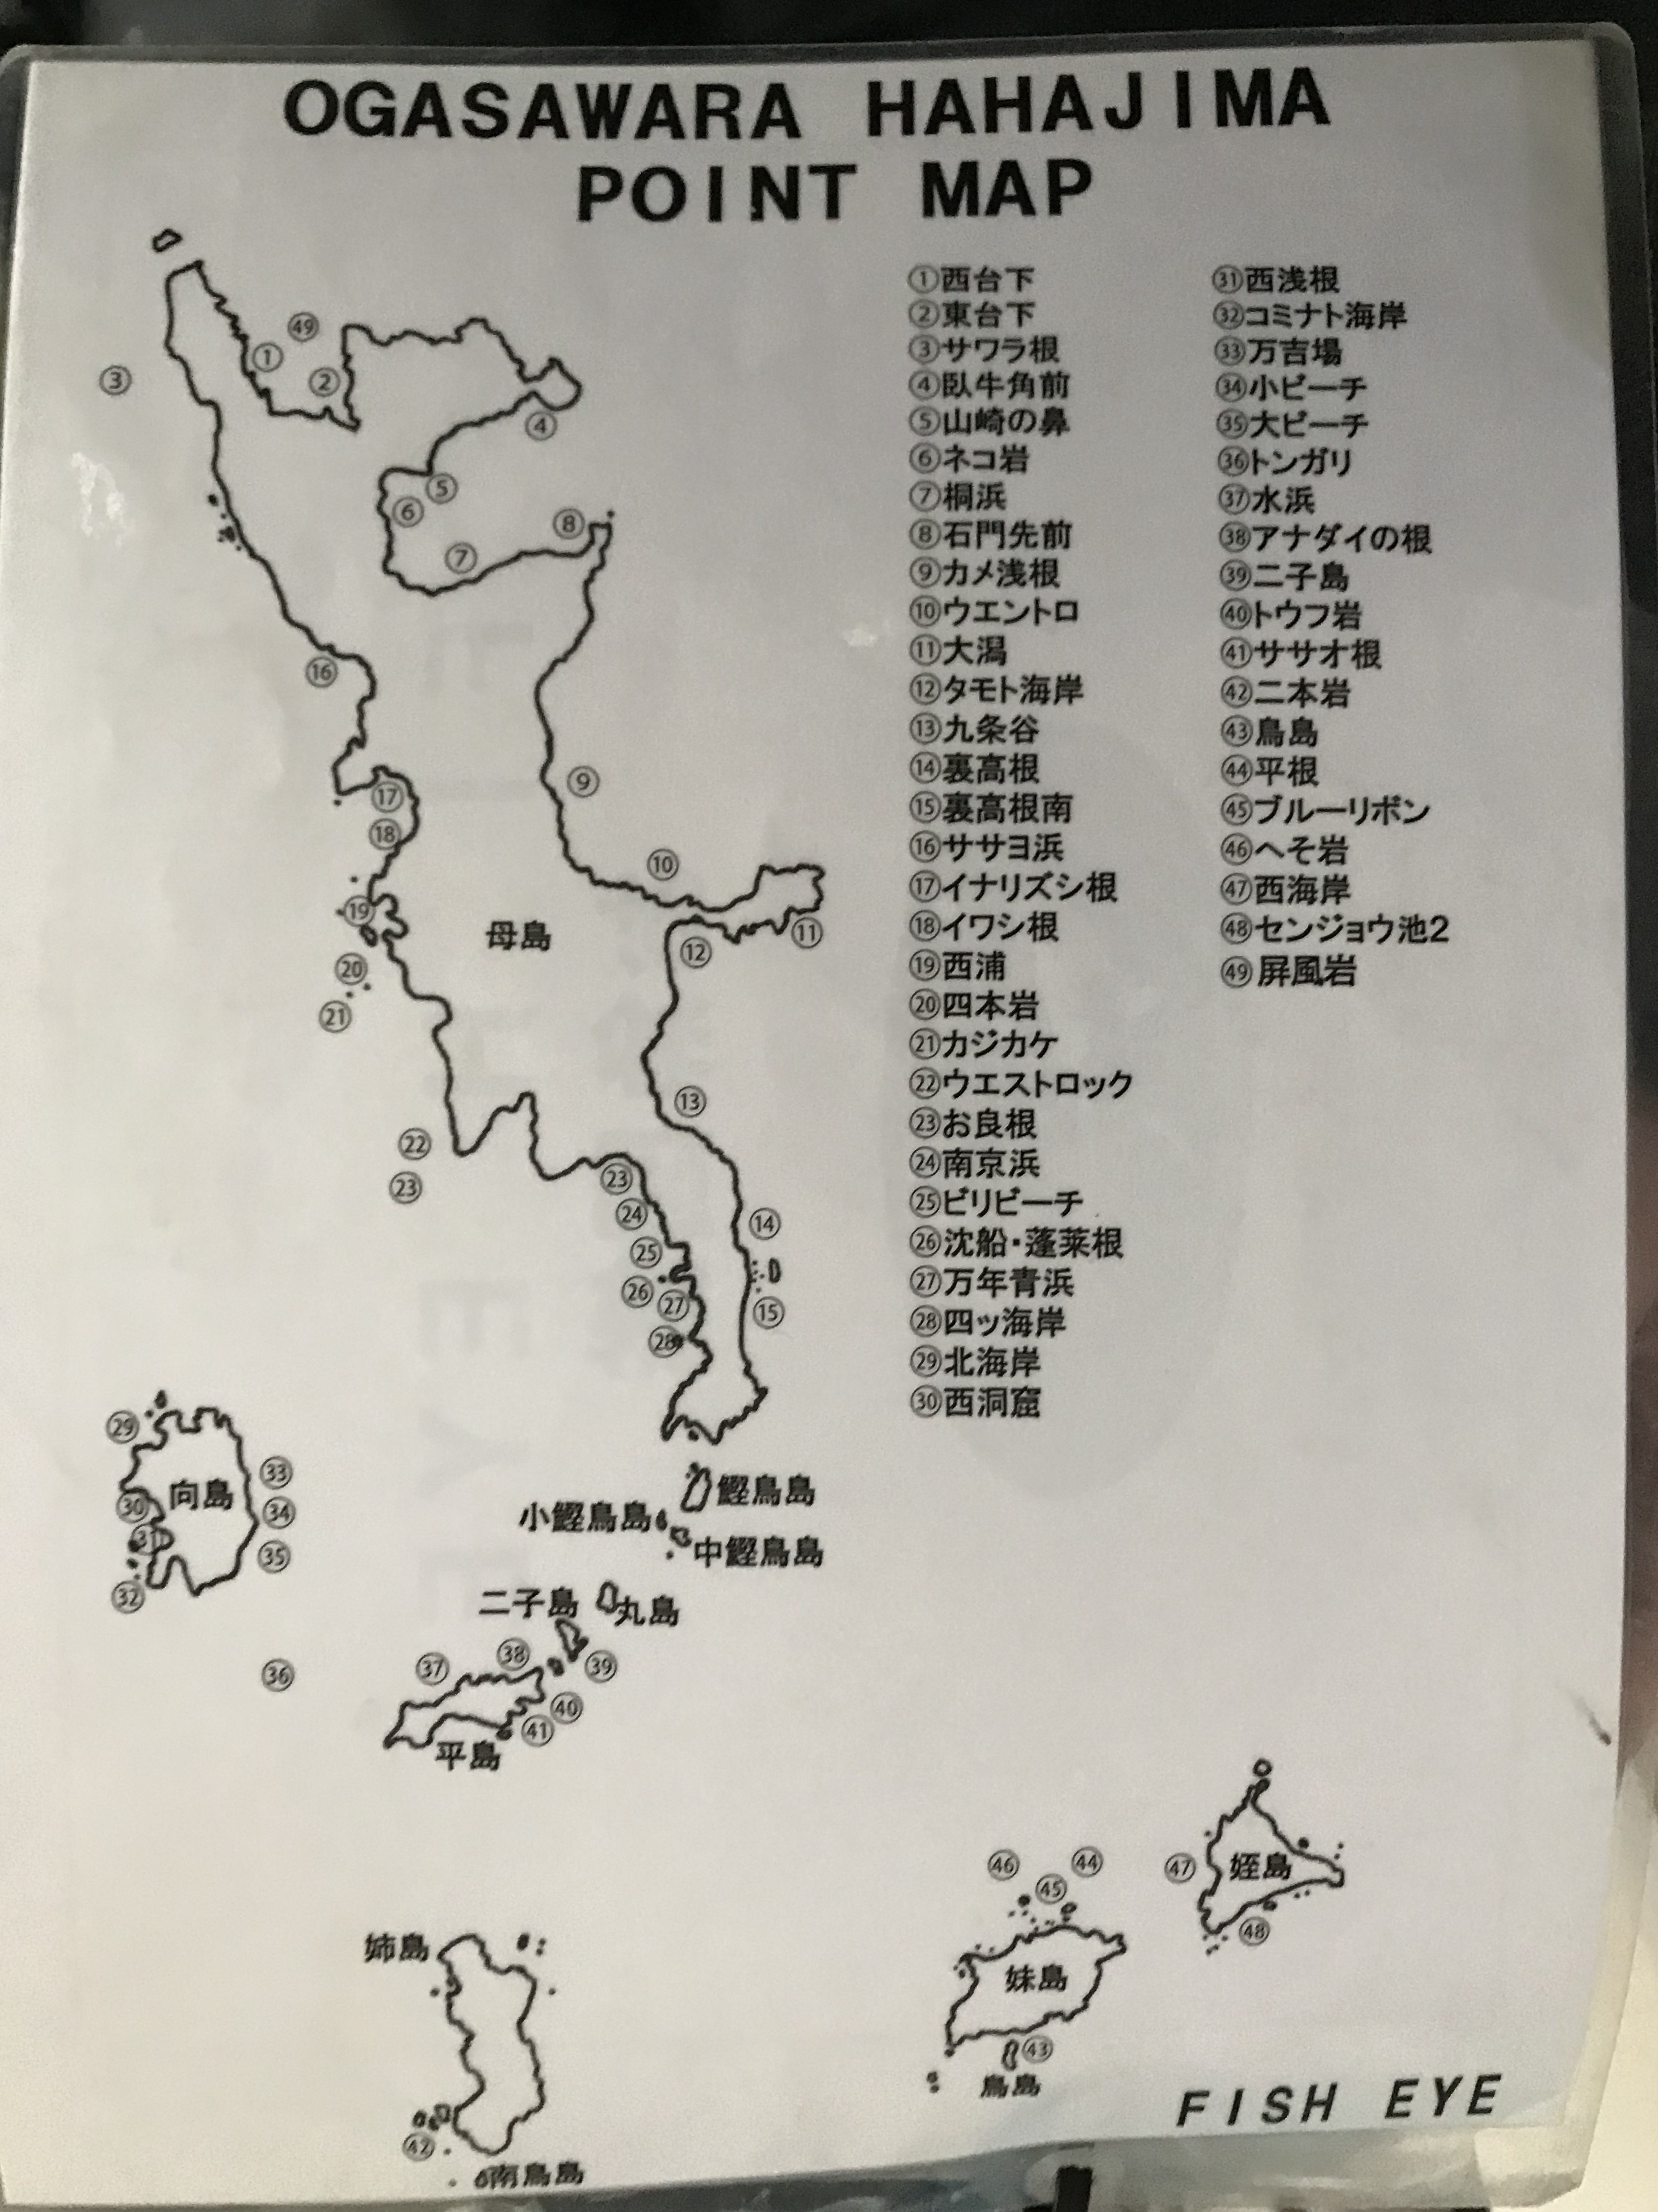 OGASAWARA HAHAJIMA
POINT MAP
①西台下
②東台下
③サワラ根
④臥牛角前
⑤山崎の鼻
⑥ネコ岩
⑦桐浜
⑧石門先前
⑨カメ浅根
⑩ウエントロ
⑪大潟
⑫タモト海岸
⑬九条谷
⑭裏高根
⑮裏高根南
⑯ササヨ浜
⑰イナリズシ根
⑱イワシ根
⑲西浦
⑳四本岩
㉑カジカケ
㉒ウエストロック
㉓お良根
㉔南京浜
㉕ビリビーチ
㉖沈船・蓬莱根
㉗万年青浜
㉘四ッ海岸
㉙北海岸
㉚西洞窟
㉛西浅根
㉜コミナト海岸
㉝万吉場
㉞小ビーチ
㉟大ビーチ
㊱トンガリ
㊲水浜
㊳アナダイの根
㊴二子島
㊵トウフ岩
㊶ササオ根
㊷二本岩
㊸鳥島
㊹平根
㊺ブルーリボン
㊻へそ岩
㊼西海岸
㊽センジョウ池2
㊾屏風岩
㊾
①
②
③
④
⑤
⑥
⑧
⑦
⑯
⑨
⑰
⑱
⑩
⑲
母島
⑪
⑫
⑳
㉑
⑬
㉒
㉓
㉓
㉔
⑭
㉕
㉖
㉗
⑮
㉘
㉙
向島
㉝
㉚
㉞
㉛
㉟
㉜
鰹鳥島
小鰹鳥島
中鰹鳥島
二子島
丸島
㊱
㊲
㊳
㊴
㊵
㊶
平島
㊻
㊹
㊺
㊼
姪島
㊽
姉島
妹島
㊸
鳥島
㊷
南鳥島
FISH EYE